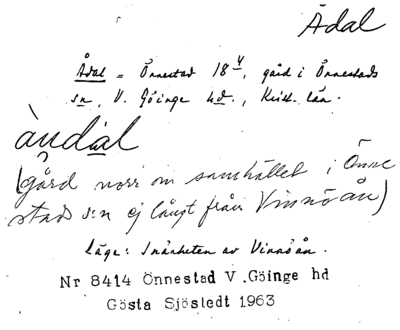 Ådal
Ådal = Önnestad 18⁴, gård i Önnestads
sn, V. Göinge hd., Krist. län.
àndal
(gård norr om samhället i Önne
stads s:n ej långt från Vinnöån)
Läge: I närheten av Vinnöån.
Nr 8414 Önnestad V.Göinge hd
Gösta Sjöstedt 1963